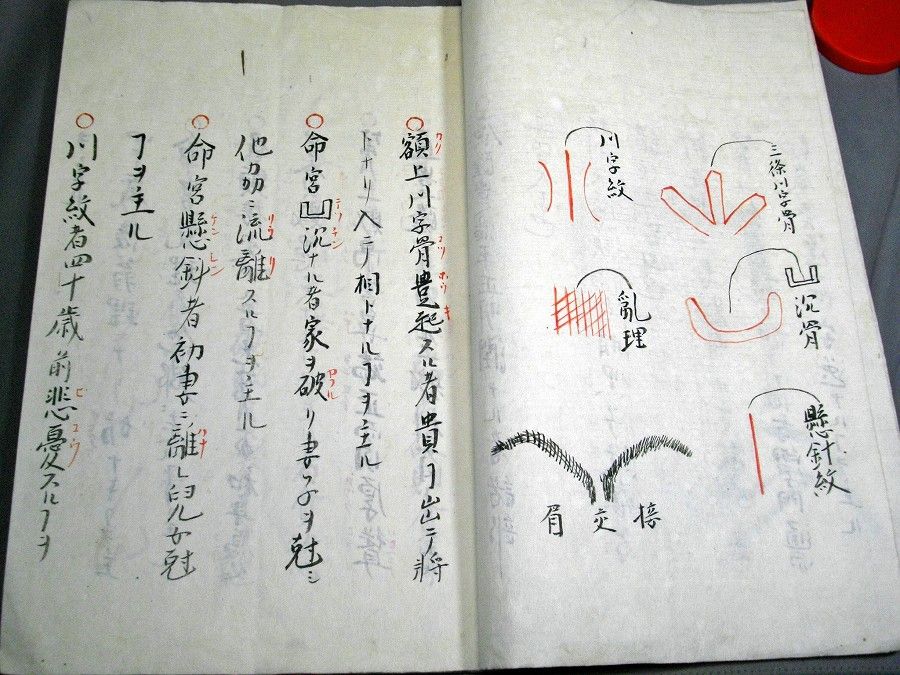 三條川字骨
凵沉骨
懸針紋
川字紋
亂理
接交眉
○額上川字骨豊起スル者貴ヿ出テ將
トナリ入テ相トナルヿヲ主ル
○命宮凵沉ナル者家ヲ破リ妻子ヲ尅シ
他邦ニ流離スルヿヲ主ル
○命宮懸斜者初妻ニ離レ兒女尅
ヿヲ主ル
○川字紋者四十歳前悲憂スルヿヲ